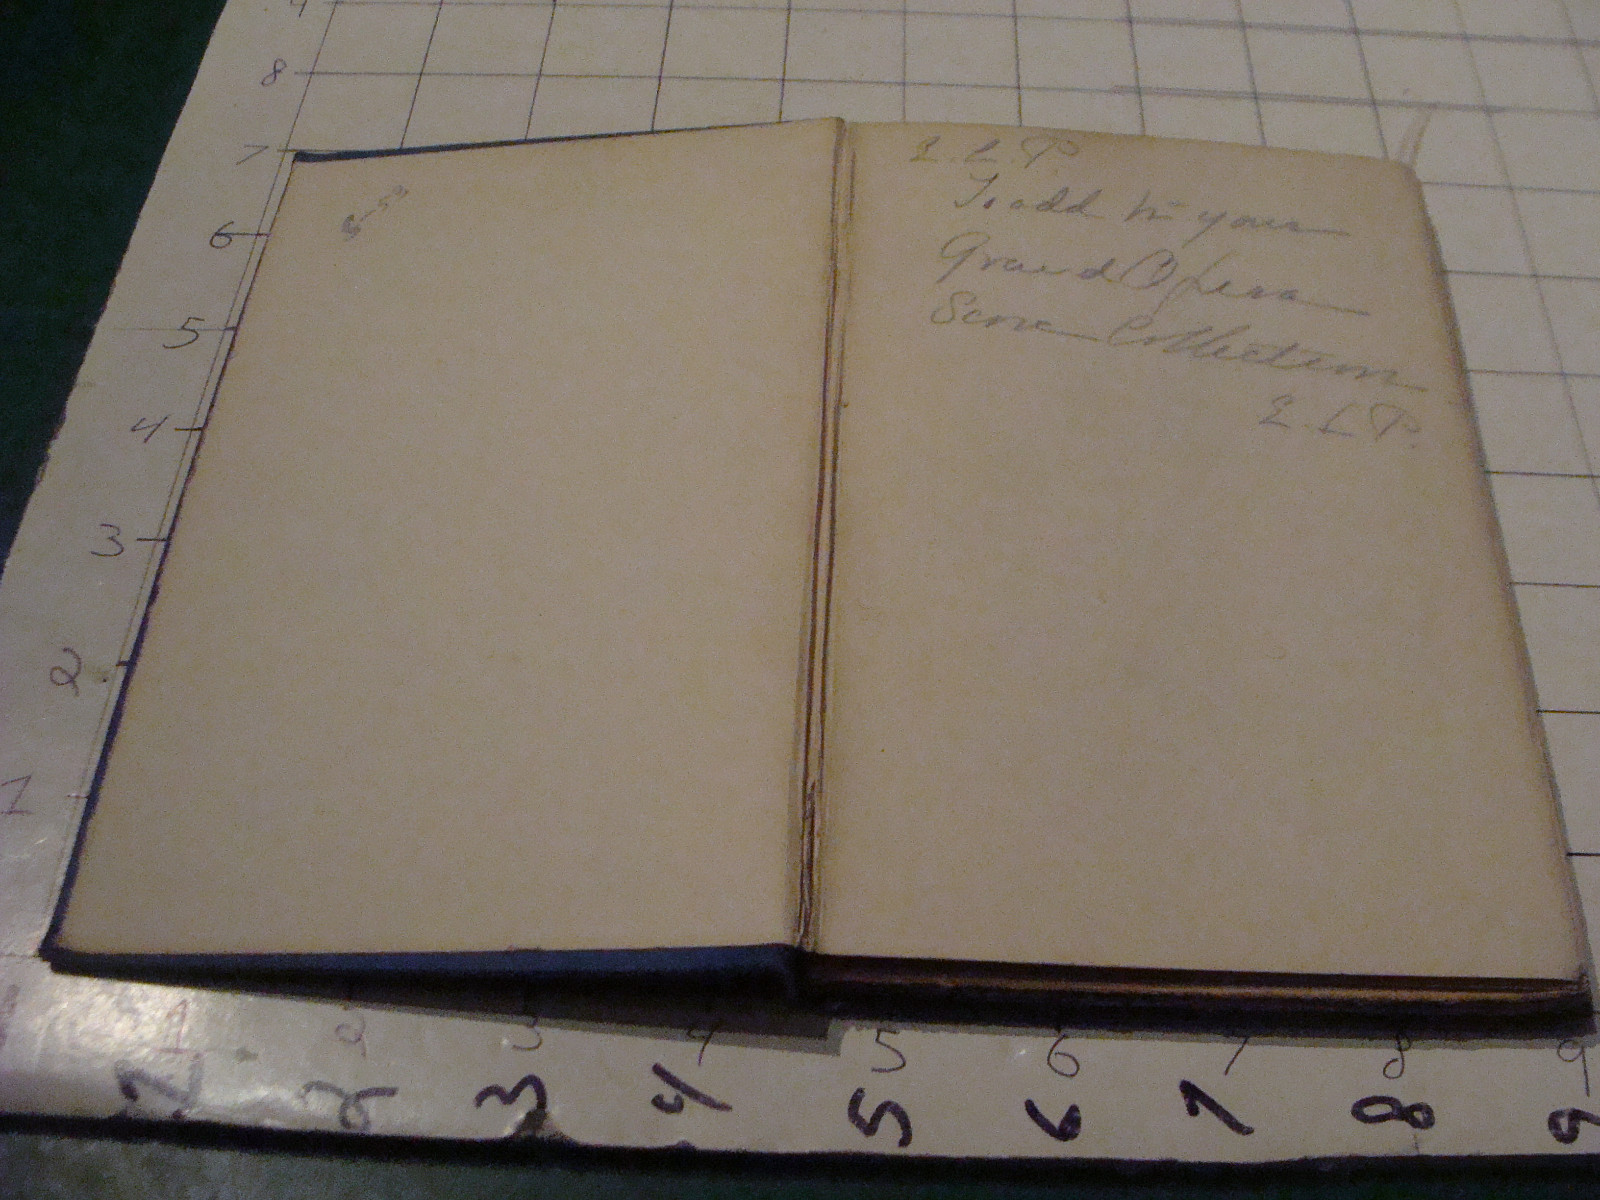 4
8
7
6
5
4
3
2
1
E. L. P.
To add to your
Grand Opera
Score Collection
E. L. P.
1 2 3 4 5 6 7 8 9
1 2 3 4 5 6 7 8 9